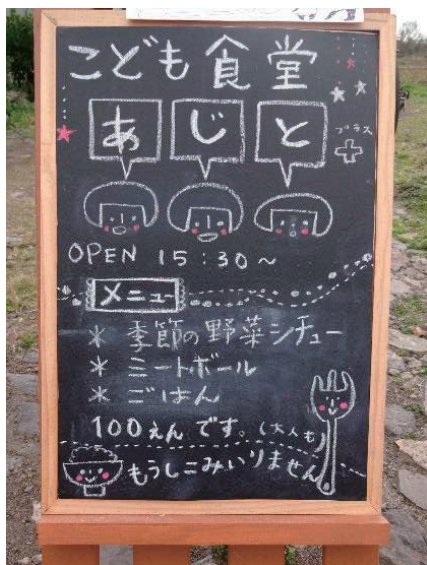 こども食堂
あじと
プラス
+
OPEN 15:30～
メニュー
* 季節の野菜シチュー
* ミートボール
* ごはん
100えんです。(大人も)
もうしこみいりません